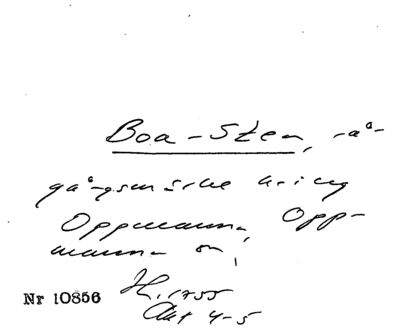 Boa-Sten, rå-
gångsmärke kring
Oppmanna, Opp-
manna sn,
H. 1755
Akt 4-5
Nr 10856